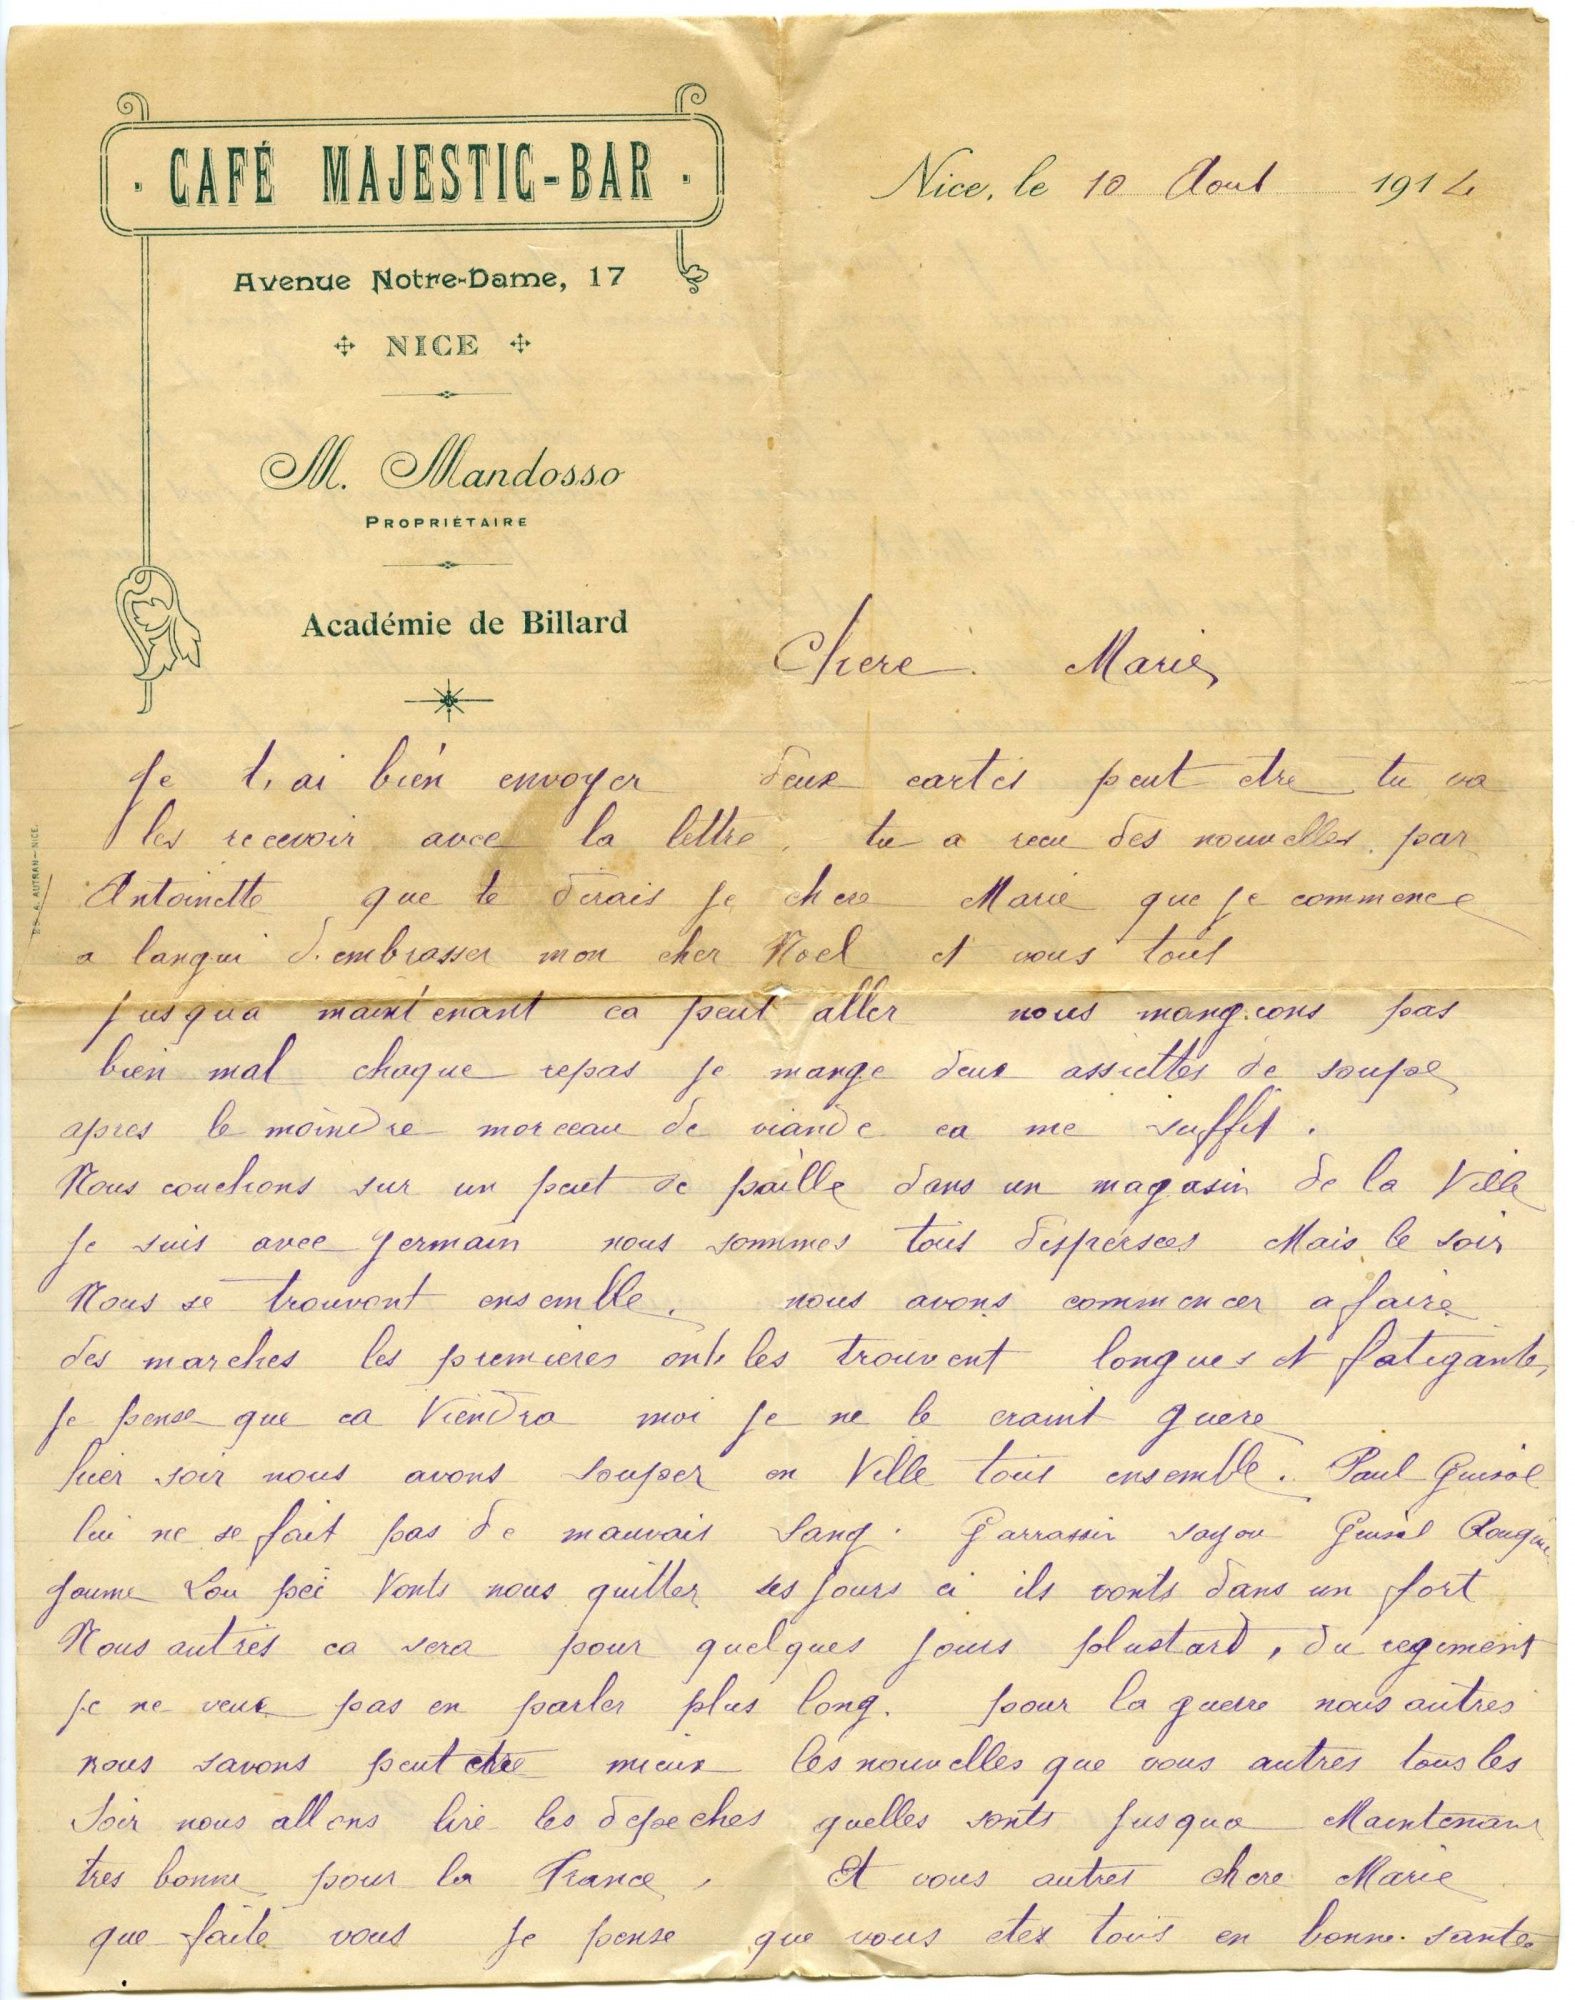 CAFÉ MAJESTIC-BAR
Avenue Notre-Dame, 17
NICE
M. Mandosso
PROPRIÉTAIRE
Académie de Billard
Nice, le 10 Aout 1914
Chere Marie
Je t, ai bien envoyer deux cartes peut etre tu va
les recevoir avec la lettre, tu a recu des nouvelles par
Antoinette que te dirais je chere Marie que je commence
a langui d'embrasser mon cher Noel et vous tous
jusqua maintenant ca peut aller nous mangeons pas
bien mal chaque repas je mange deux assiettes de soupe
apres le moindre morceau de viande ca me suffit.
Nous couchons sur un peut de paille dans un magasin de la Ville
je suis avec germain nous sommes tous disperses Mais le soir
Nous se trouvont ensemble. nous avons commencer a faire
des marches les premieres onts les trouvent longues et fatigante,
je pense que ca Viendra moi je ne le craint guere
hier soir nous avons souper en Ville tous ensemble. Paul Guisol
lui ne se fait pas de mauvais sang. Garrassin sayou
joume Lou pei Vonts nous quitter ses jours ci ils vonts dans un fort
Nous autres ca sera pour quelques jours plustard, du regiment
je ne veux pas en parler plus long. pour la guerre nous autres
nous savons peut etre mieux les nouvelles que vous autres tous les
soir nous allons lire les depeches quelles sonts jusqua Maintenant
tres bonne pour la France, Et vous autres chere Marie
que faite vous je pense que vous etes tous en bonne sante
A. AUTRAN—NICE.